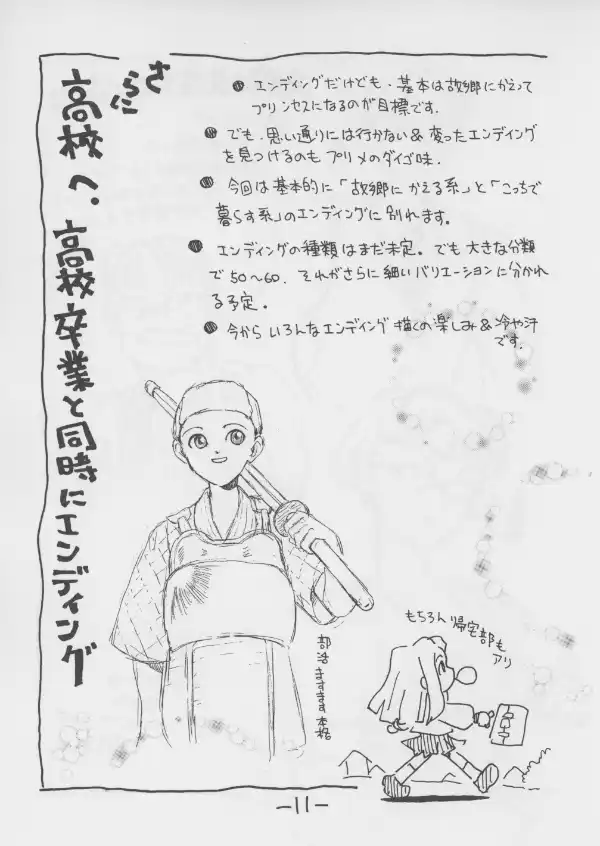 さらに
高校へ。高校卒業と同時にエンディング
● エンディングだけども、基本は故郷にかえって
プリンセスになるのが目標です。
● でも、思い通りには行かない&変ったエンディング
を見つけるのもプリメのダイゴ味。
● 今回は基本的に「故郷にかえる系」と「こっちで
暮らす系」のエンディングに別れます。
● エンディングの種類はまだ未定。でも大きな分類
で50〜60、それがさらに細いバリエーションに分かれ
る予定。
● 今からいろんなエンディング描くの楽しみ&冷や汗
です。
部活ますます本格
もちろん帰宅部も
アリ
-11-